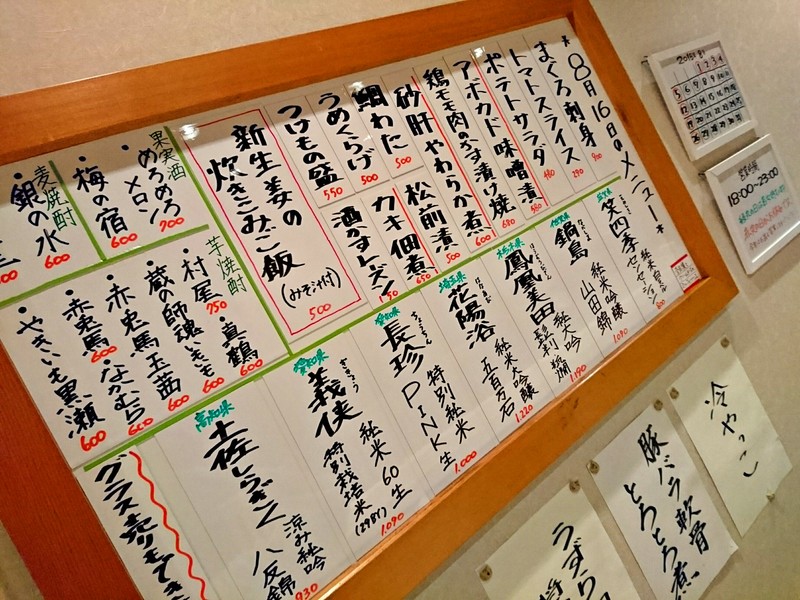 *8月16日のメニュー*
まぐろ刺身 900
トマトスライス 290
ポテトサラダ 480
アボカド味噌漬 680
鶏モモ肉のかす漬け焼
砂肝やわらか煮 600
鯛わた 500
うめくらげ 500
つけもの盛 550
松前漬 500
カキ佃煮 650
酒かすレーズン
新生姜の
炊きこみご飯
(みそ汁付)
500
滋賀県
笑四季
センセーション
600
佐賀県
鍋島
純米吟醸
山田錦
1,090
栃木県
鳳凰美田
純米大吟
1,190
埼玉県
花陽浴
純米大吟醸
五百万石
1,220
愛知県
長珍
PINK生
特別純米
1,000
愛知県
義侠
純米60生
特別栽培米
1,090
高知県
土佐しらぎく
涼み純吟
八反錦
930
果実酒
めろめろメロン 700
梅の宿 600
麦焼酎
銀の水 600
芋焼酎
村尾 750
真鶴 600
蔵の師魂 いも 600
赤兎馬玉茜 600
なかむら 600
赤兎馬 600
やきいも黒瀬 600
グラス売りもでき
2015
18:00~23:00
冷やっこ
豚バラ軟骨
とろとろ煮
うずら